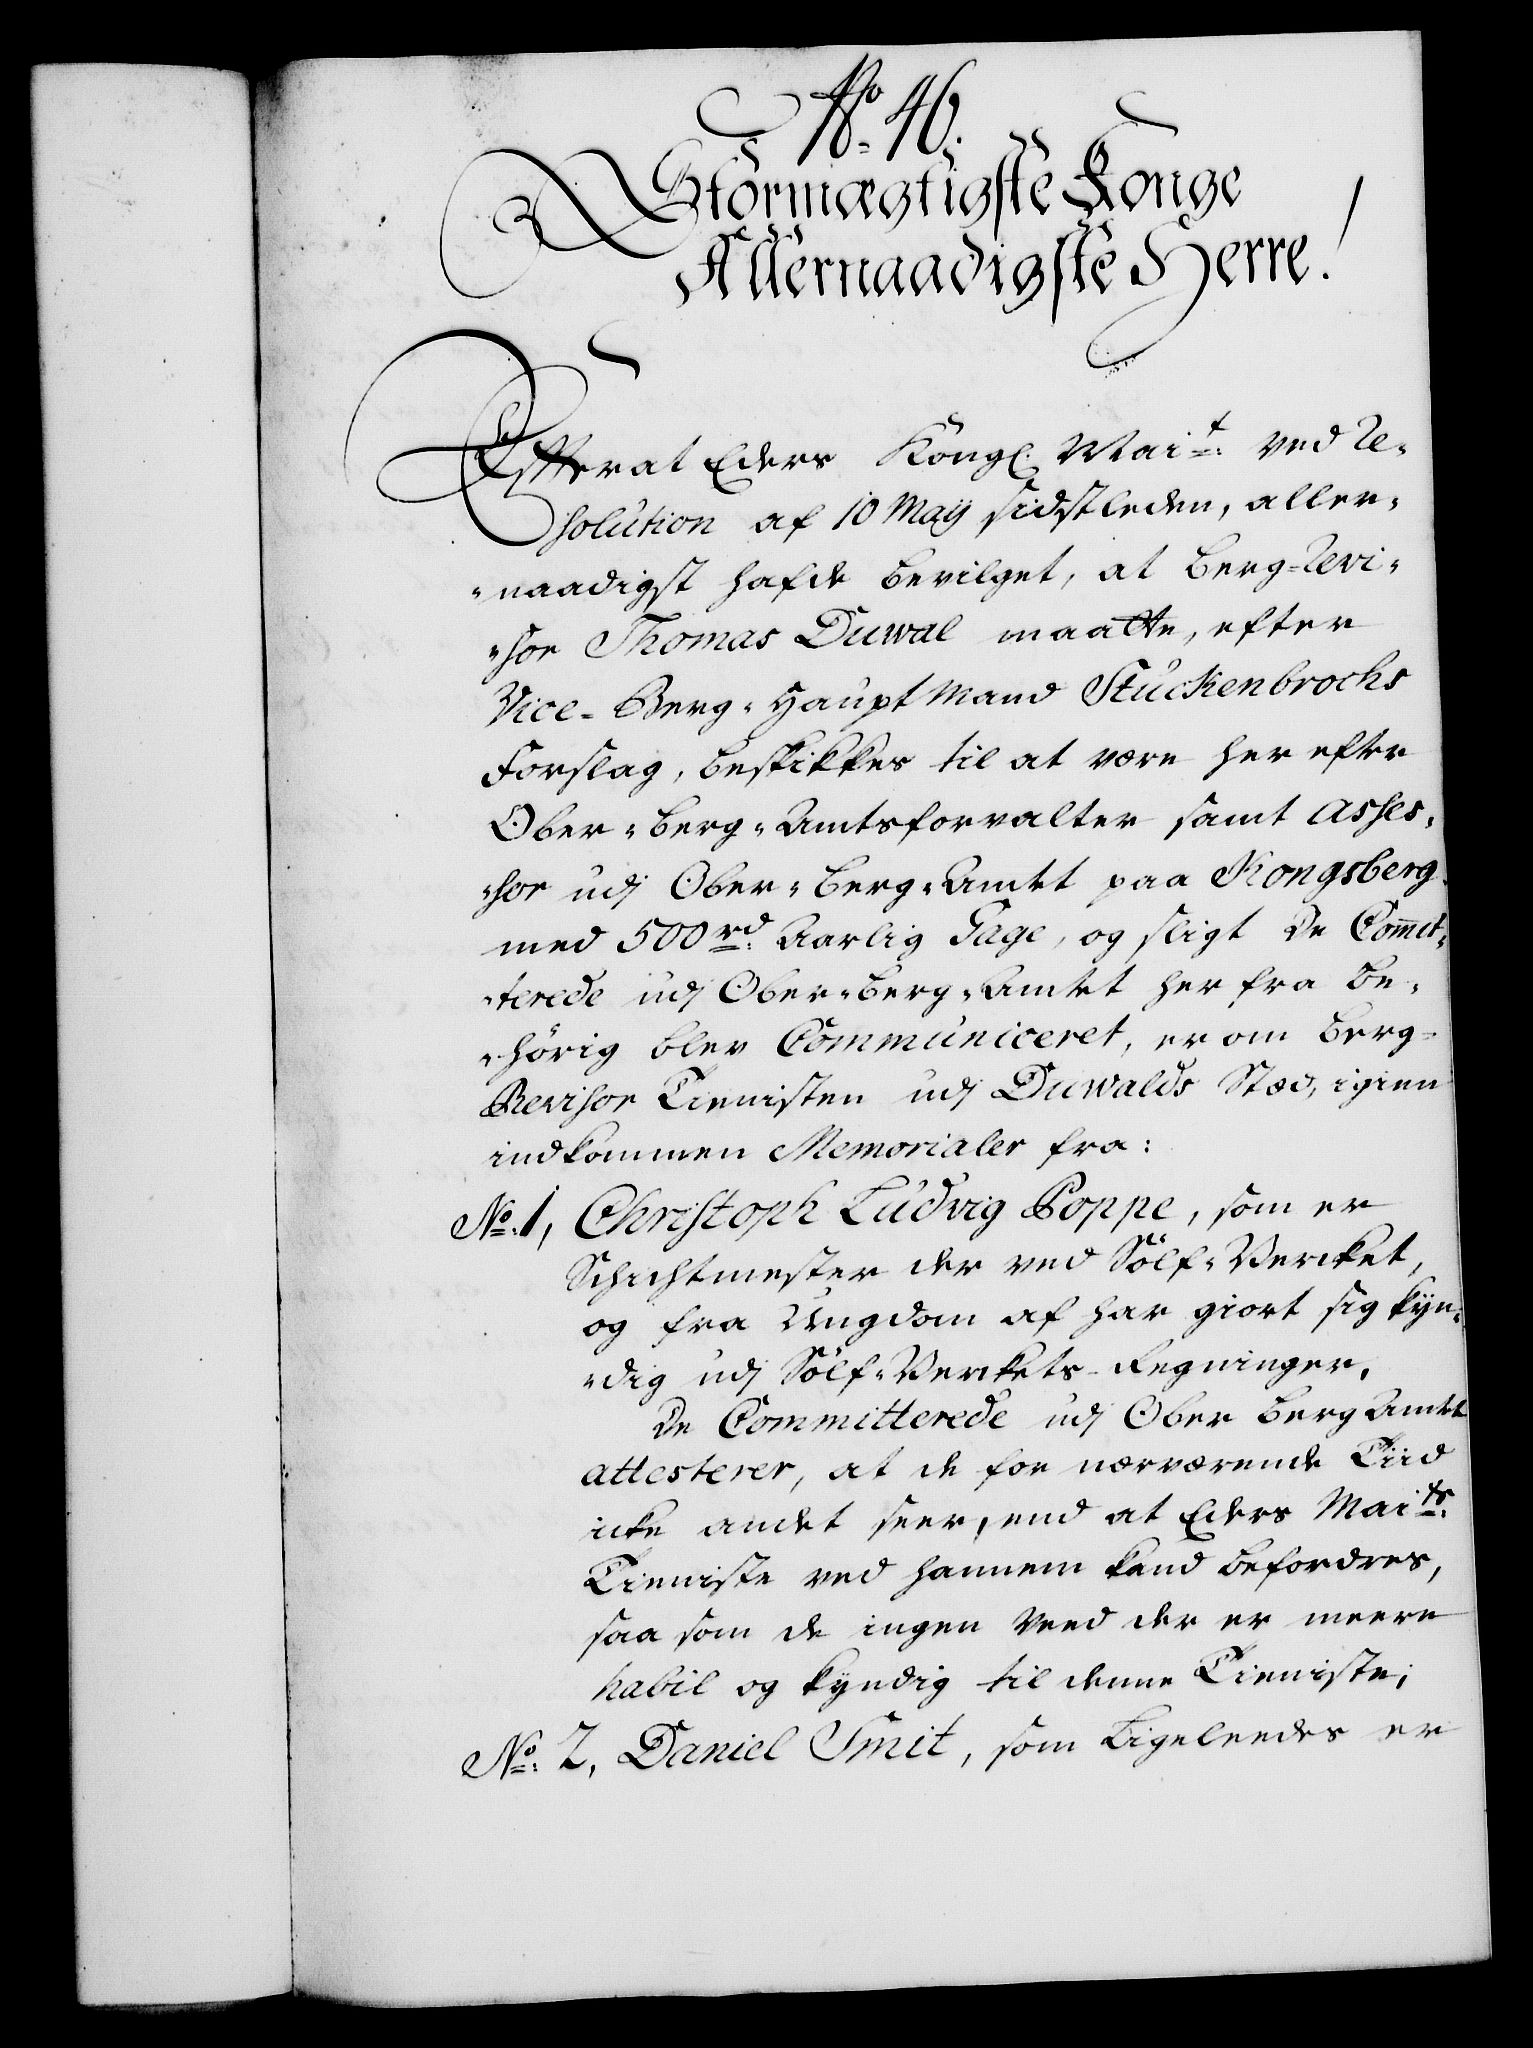 No. 46.
Stormægtigste Konge
Allernaadigste Herre!
Efterat Eders Kongl. Mait: ved Re-
solution af 10 Maij sidstleden, aller-
-naadigst hafde bevilget, at Berg-Revi-
-sor Thomas Duwal maatte, efter
Vice-Berg-Hauptmand Stuckenbrochs
Forslag, beskikkes til at være her efter
Ober-Berg-Amtsforvalter samt Asses-
-sor udj Ober-Berg-Amtet paa Kongsberg
med 500 rd. Aarlig Gage, og sligt de Com̄it-
-terede udj Ober-Berg-Amtet her fra be-
-hörig blev Communiceret, er om Berg-
Revisor Tienisten udj Duwalds Stæd, igien
indkommen Memorialer fra:
No. 1, Christoph Ludvig Poppe, som er
Schichtmester der ved Sölf-Vercket,
og fra Ungdom af har giort sig kyn-
-dig udj Sölf-Verkets-Regninger.
De Committerede udj Ober Berg Amtet
attesterer, at de for nærværende Tiid
icke andet seer, end at Eders Maits:
Tieniste ved hannem kand befordres,
saa som de ingen veed der er meere
habil og kyndig til denne Tieniste;
No. 2, Daniel Smit, som Ligeleedes er